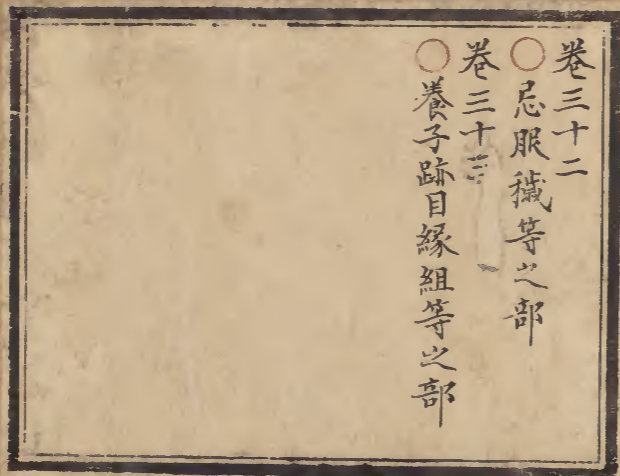 巻三十二
○忌服穢等之部
巻三十三
○養子跡目縁組等之部